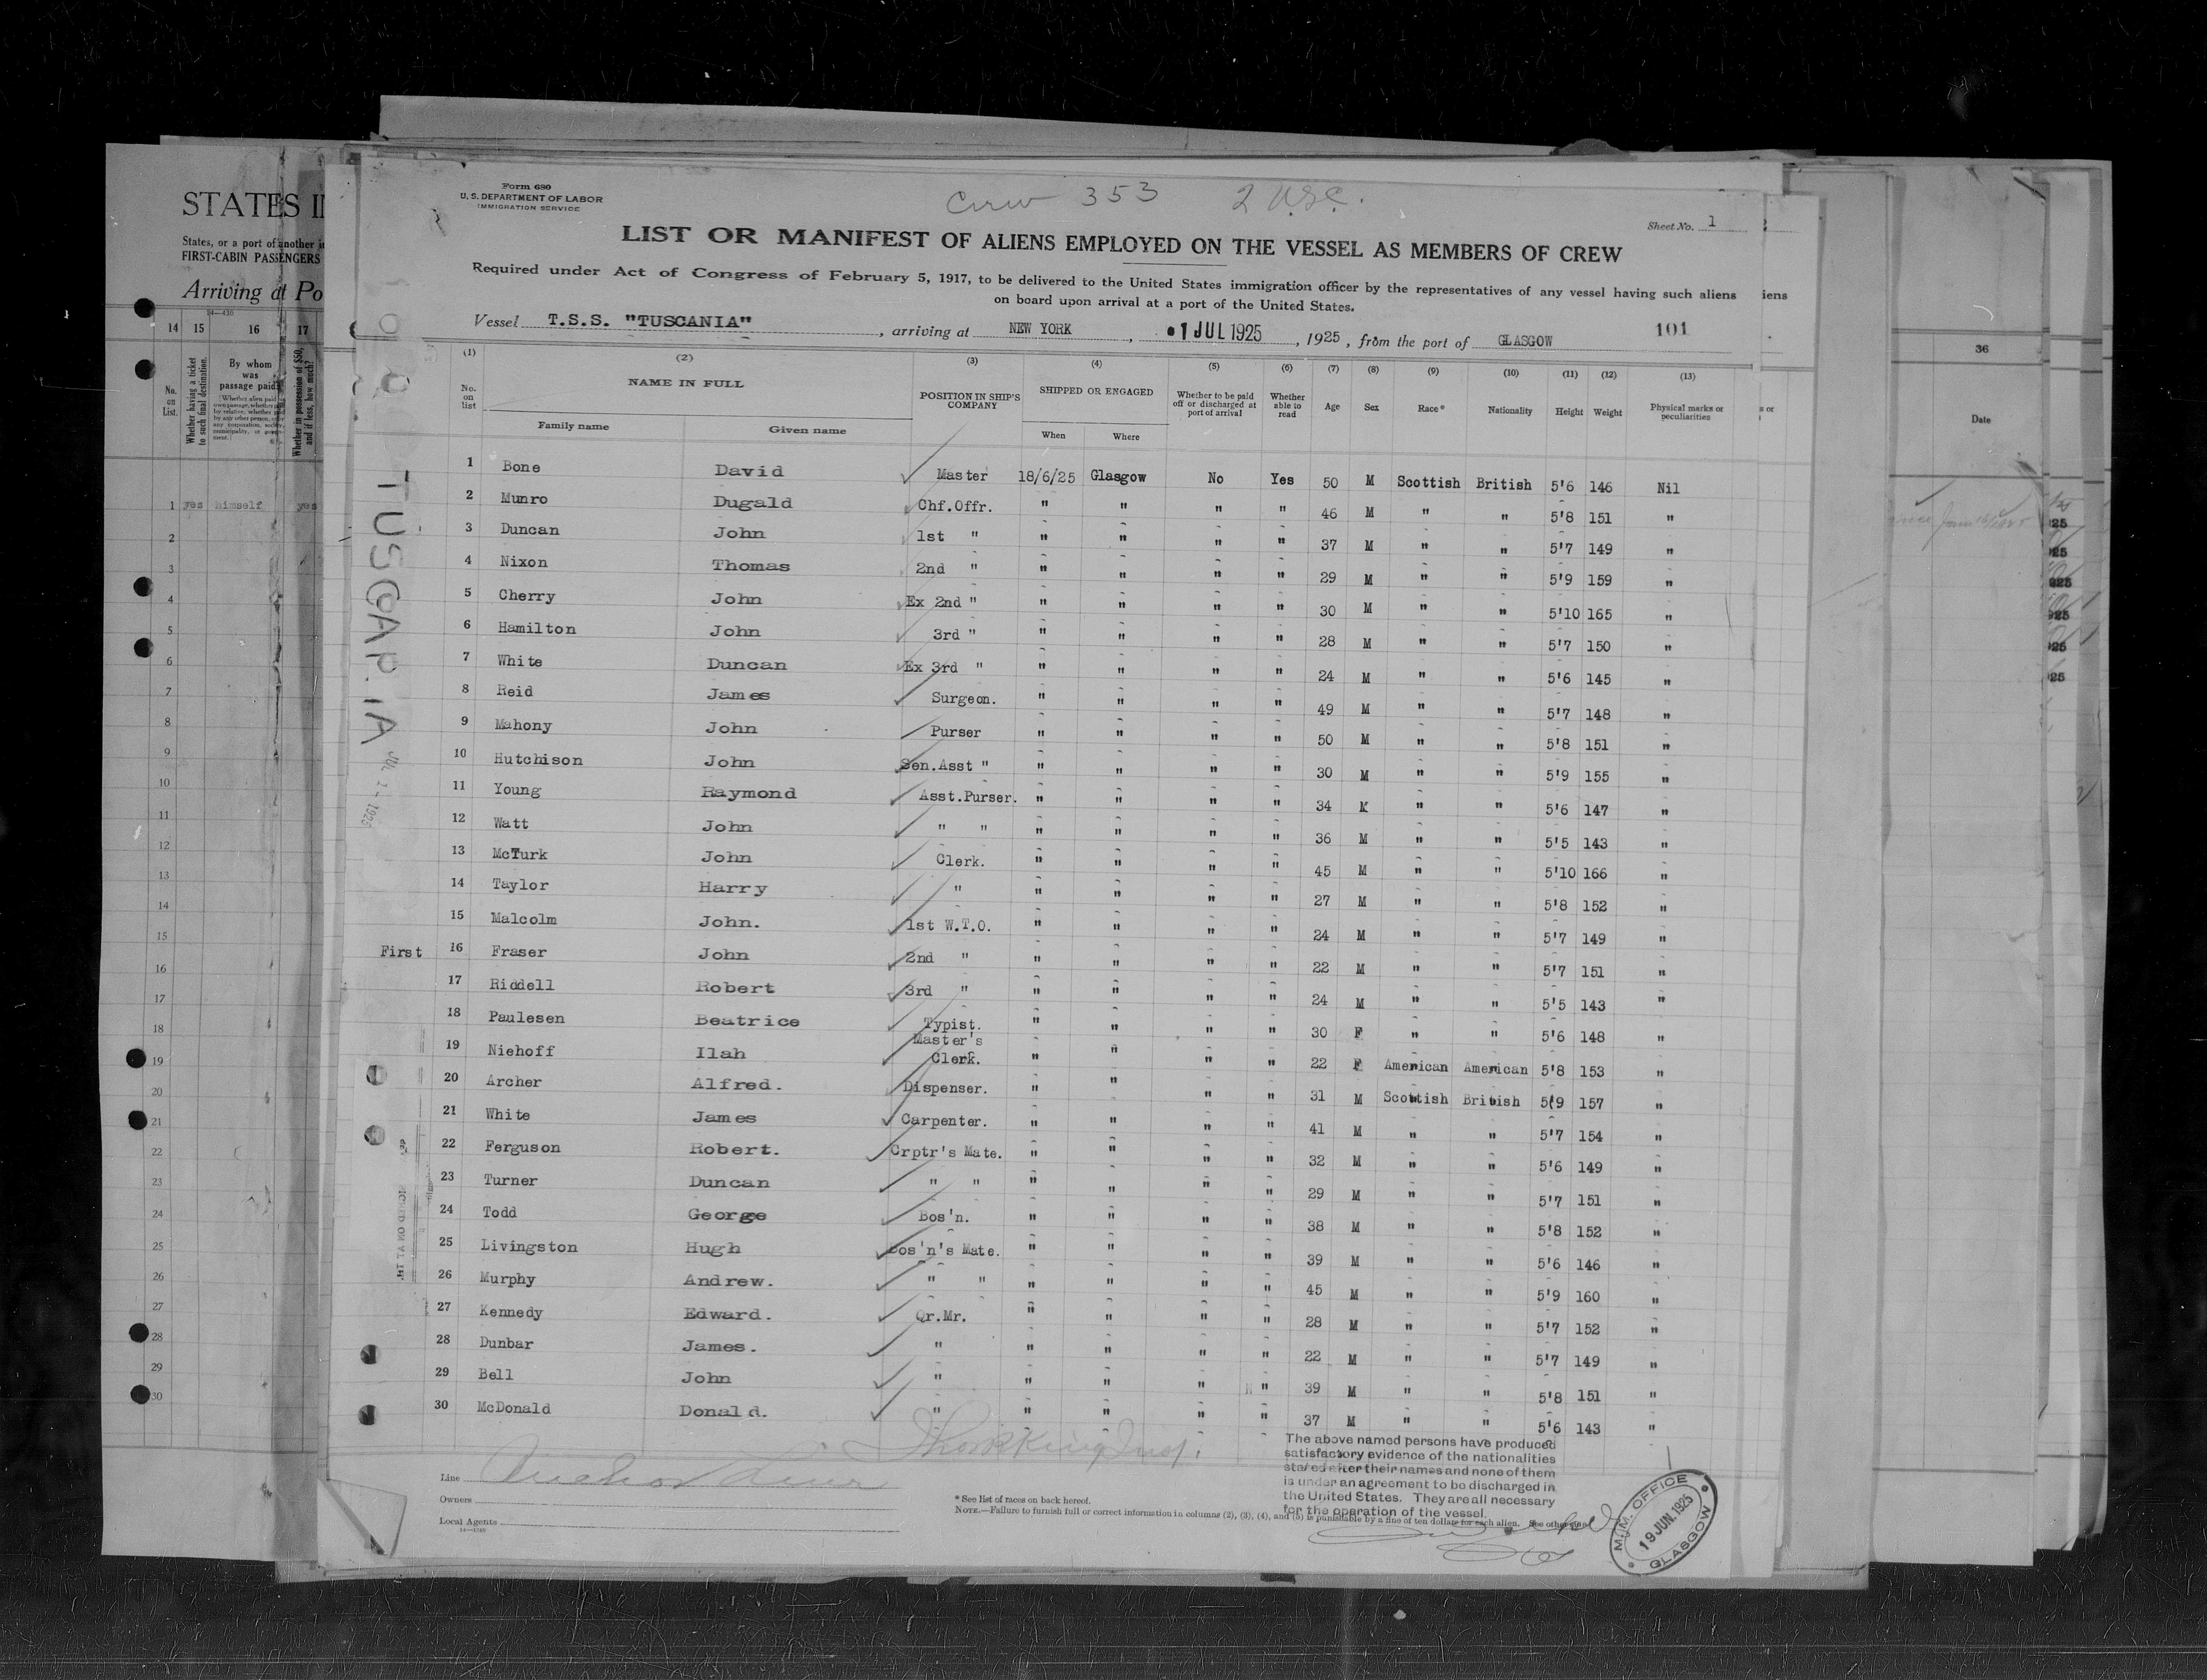 Form 680
U. S. DEPARTMENT OF LABOR
IMMIGRATION SERVICE
Crew 353 2 U.S.C.
Sheet No. 1
LIST OR MANIFEST OF ALIENS EMPLOYED ON THE VESSEL AS MEMBERS OF CREW
Required under Act of Congress of February 5, 1917, to be delivered to the United States immigration officer by the representatives of any vessel having such aliens
on board upon arrival at a port of the United States.
Vessel T.S.S. "TUSCANIA", arriving at NEW YORK, 1 JUL 1925, 1925, from the port of GLASGOW 101
(1) (2) (3) (4) (5) (6) (7) (8) (9) (10) (11) (12) (13)
No. on list NAME IN FULL Family name Given name POSITION IN SHIP'S COMPANY SHIPPED OR ENGAGED When Where Whether to be paid off or discharged at port of arrival Whether able to read Age Sex Race* Nationality Height Weight Physical marks or peculiarities
1 Bone David Master 18/6/25 Glasgow No Yes 50 M Scottish British 5'6 146 Nil
2 Munro Dugald Chf.Offr. " " " " 46 M " " 5'8 151 "
3 Duncan John 1st " " " " " 37 M " " 5'7 149 "
4 Nixon Thomas 2nd " " " " " 29 M " " 5'9 159 "
5 Cherry John Ex 2nd " " " " " 30 M " " 5'10 165 "
6 Hamilton John 3rd " " " " " 28 M " " 5'7 150 "
7 White Duncan Ex 3rd " " " " " 24 M " " 5'6 145 "
8 Reid James Surgeon. " " " " 49 M " " 5'7 148 "
9 Mahony John Purser " " " " 50 M " " 5'8 151 "
10 Hutchison John Sen.Asst " " " " " 30 M " " 5'9 155 "
11 Young Raymond Asst.Purser. " " " " 34 K " " 5'6 147 "
12 Watt John " " " " " " 36 M " " 5'5 143 "
13 McTurk John Clerk. " " " " 45 M " " 5'10 166 "
14 Taylor Harry " " " " " 27 M " " 5'8 152 "
15 Malcolm John. 1st W.T.O. " " " " 24 M " " 5'7 149 "
First 16 Fraser John 2nd " " " " " 22 M " " 5'7 151 "
17 Riddell Robert 3rd " " " " " 24 M " " 5'5 143 "
18 Paulesen Beatrice Typist. " " " " 30 F " " 5'6 148 "
19 Niehoff Ilah Master's Clerk. " " " " 22 F American American 5'8 153 "
20 Archer Alfred. Dispenser. " " " " 31 M Scottish British 5'9 157 "
21 White James Carpenter. " " " " 41 M " " 5'7 154 "
22 Ferguson Robert. Crptr's Mate. " " " " 32 M " " 5'6 149 "
23 Turner Duncan " " " " " " 29 M " " 5'7 151 "
24 Todd George Bos'n. " " " " 38 M " " 5'8 152 "
25 Livingston Hugh Bos'n's Mate. " " " " 39 M " " 5'6 146 "
26 Murphy Andrew. " " " " " " 45 M " " 5'9 160 "
27 Kennedy Edward. Qr.Mr. " " " " 28 M " " 5'7 152 "
28 Dunbar James. " " " " " 22 M " " 5'7 149 "
29 Bell John " " " " " 39 M " " 5'8 151 "
30 McDonald Donald. " " " " " 37 M " " 5'6 143 "
The above named persons have produced
satisfactory evidence of the nationalities
stated after their names and none of them
is under an agreement to be discharged in
the United States. They are all necessary
for the operation of the vessel.
Line Anchor Line
Owners
Local Agents
14—1240
* See list of races on back hereof.
NOTE.—Failure to furnish full or correct information in columns (2), (3), (4), and (5) is punishable by a fine of ten dollars for each alien. See other side.
IMM. OFFICE
19 JUN. 1925
GLASGOW
TUSCANIA
JUL 1 - 1925
STATES
States, or a port of another
FIRST-CABIN PASSENGERS
Arriving at Po
14 15 16 17
No. on List.
Whether having a ticket to such final destination.
By whom was passage paid?
Whether in possession of $50, and if less, how much?
1 yes himself yes
2
3
4
5
6
7
8
9
10
11
12
13
14
15
16
17
18
19
20
21
22
23
24
25
26
27
28
29
30
iens
s or
36
Date